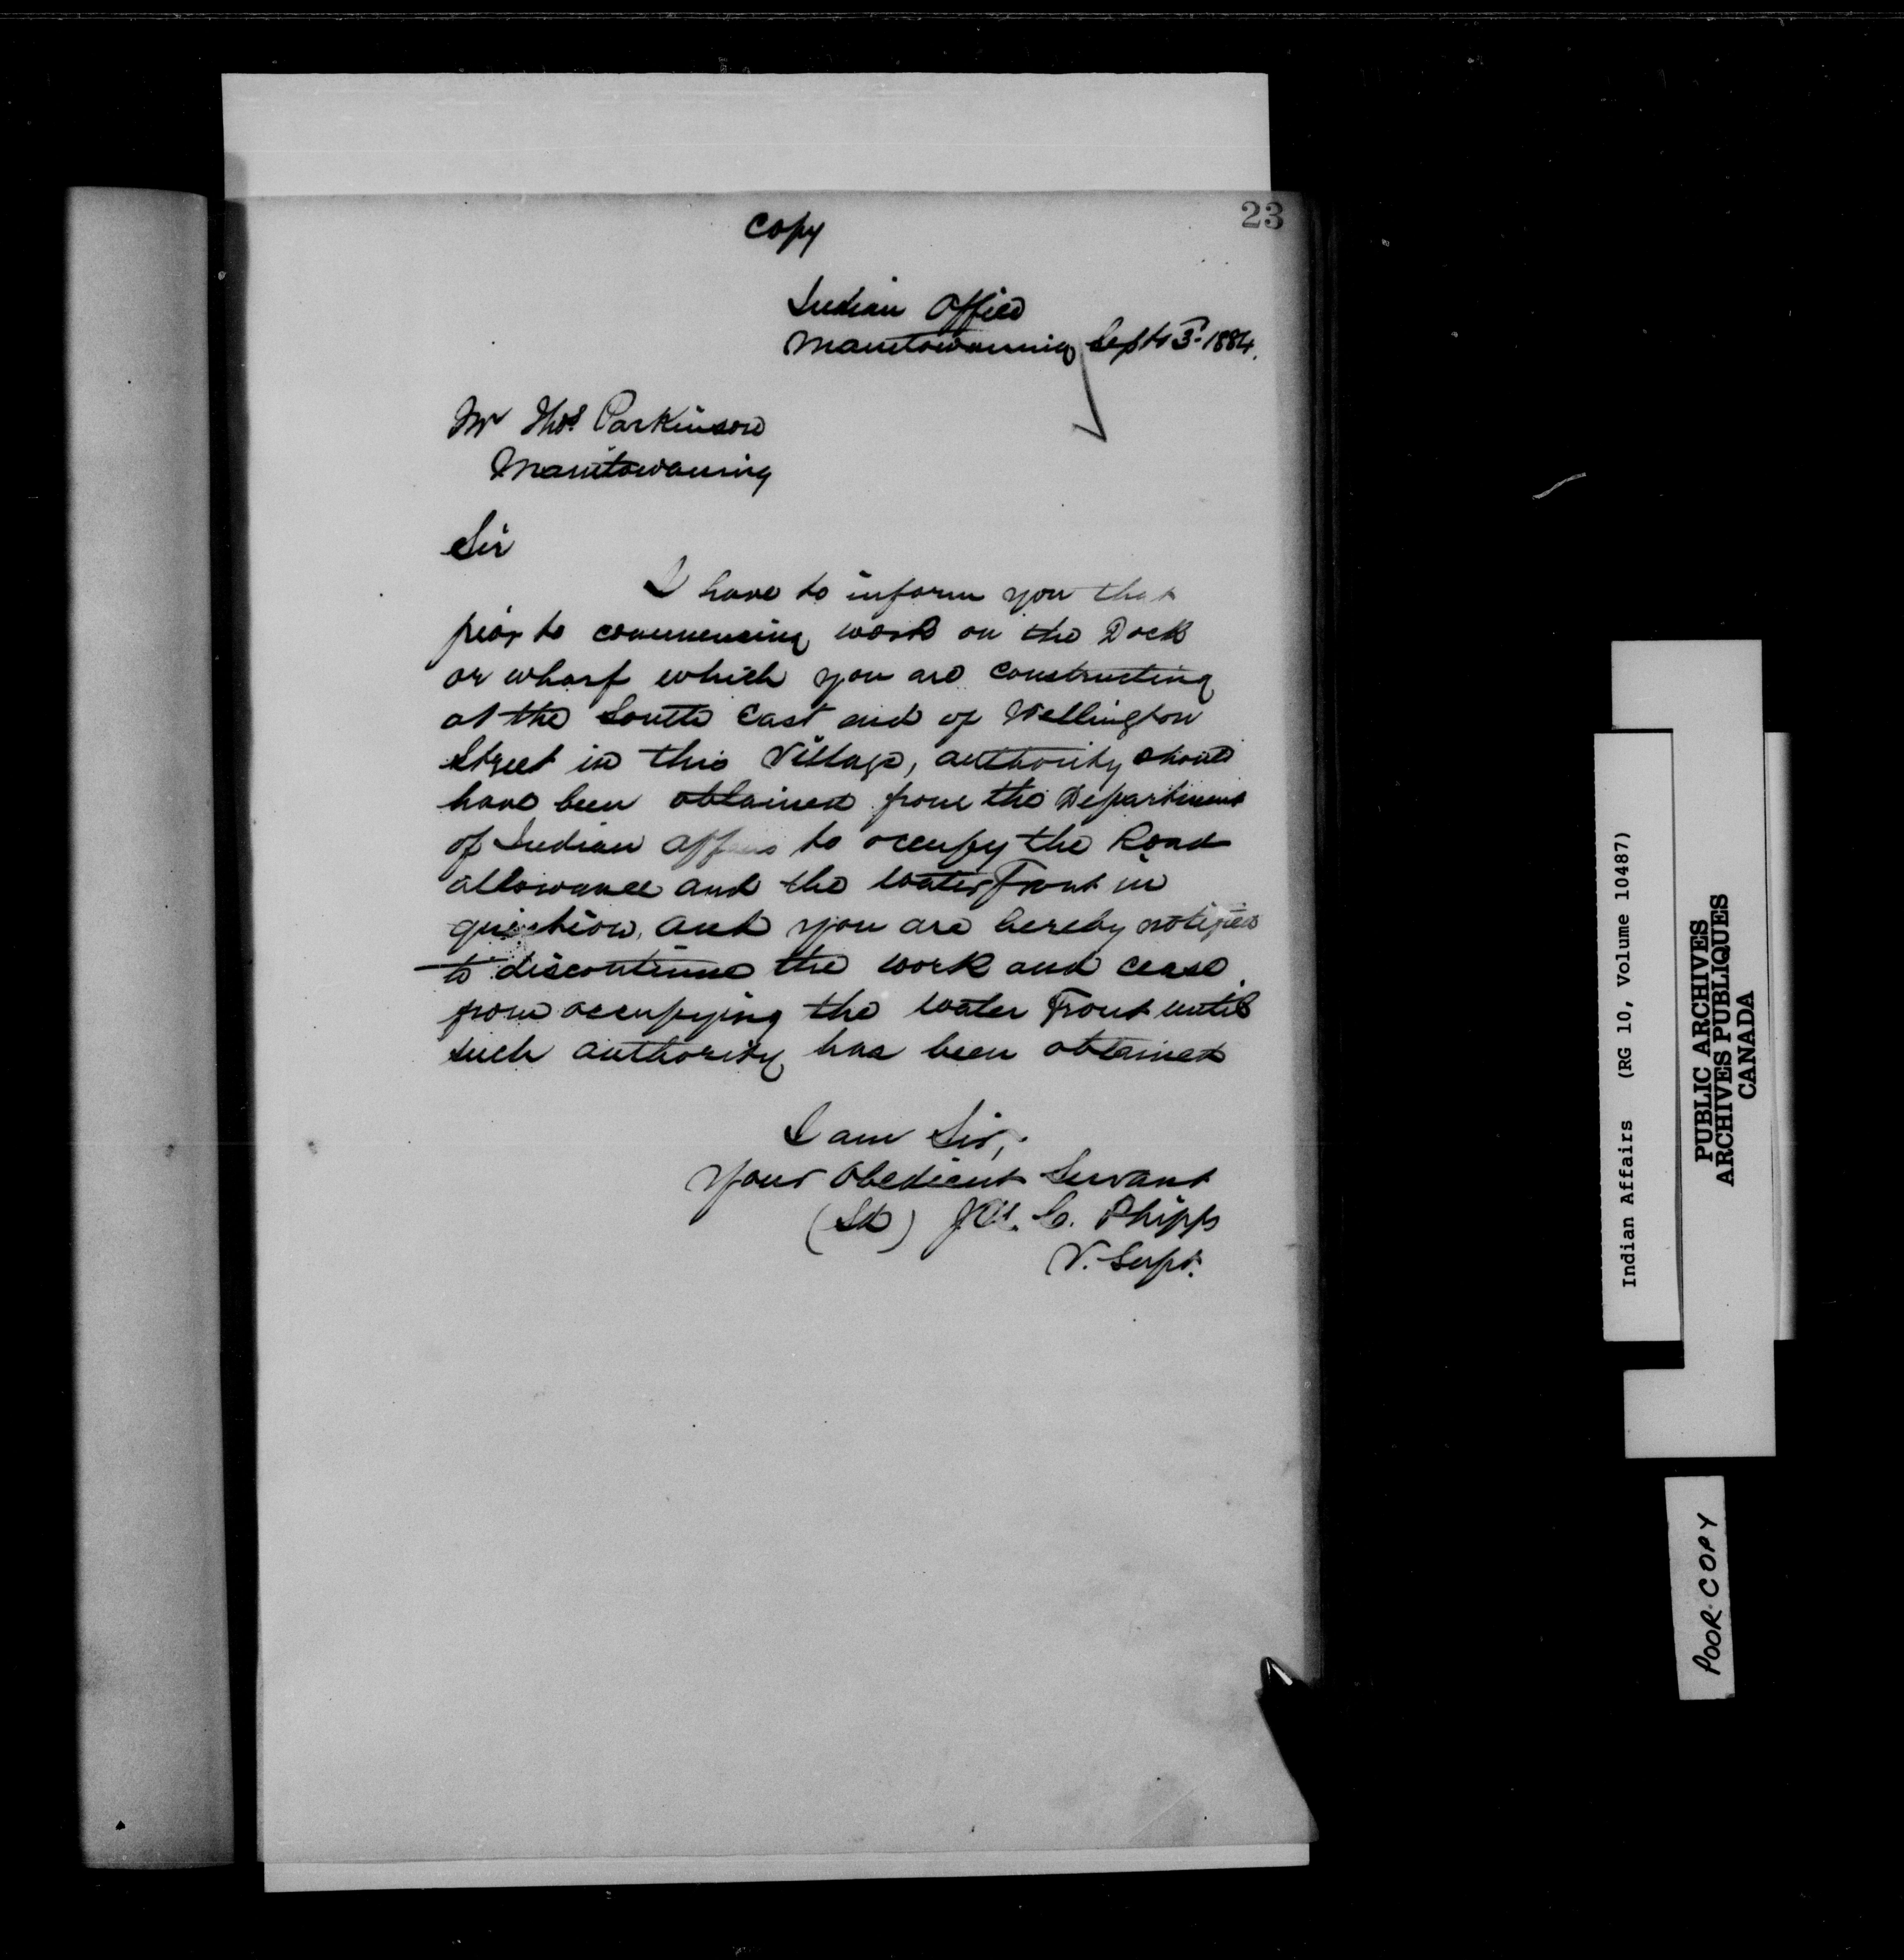 23
Copy
Indian Office
Manitowaning Sept 3 1884.
Mr Thos. Parkinson
Manitowaning
Sir
I have to inform you that
prior to commencing work on the Dock
or wharf which you are constructing
at the South East end of Wellington
Street in this Village, authority should
have been obtained from the Department
of Indian Affairs to occupy the Road
allowance and the water Front in
question, and you are hereby notified
to discontinue the work and cease
from occupying the water Front until
such authority has been obtained
I am Sir,
Your Obedient Servant
(Sd) Jas. C. Phipps
V. Supt.
Indian Affairs (RG 10, Volume 10487)
PUBLIC ARCHIVES
ARCHIVES PUBLIQUES
CANADA
POOR COPY